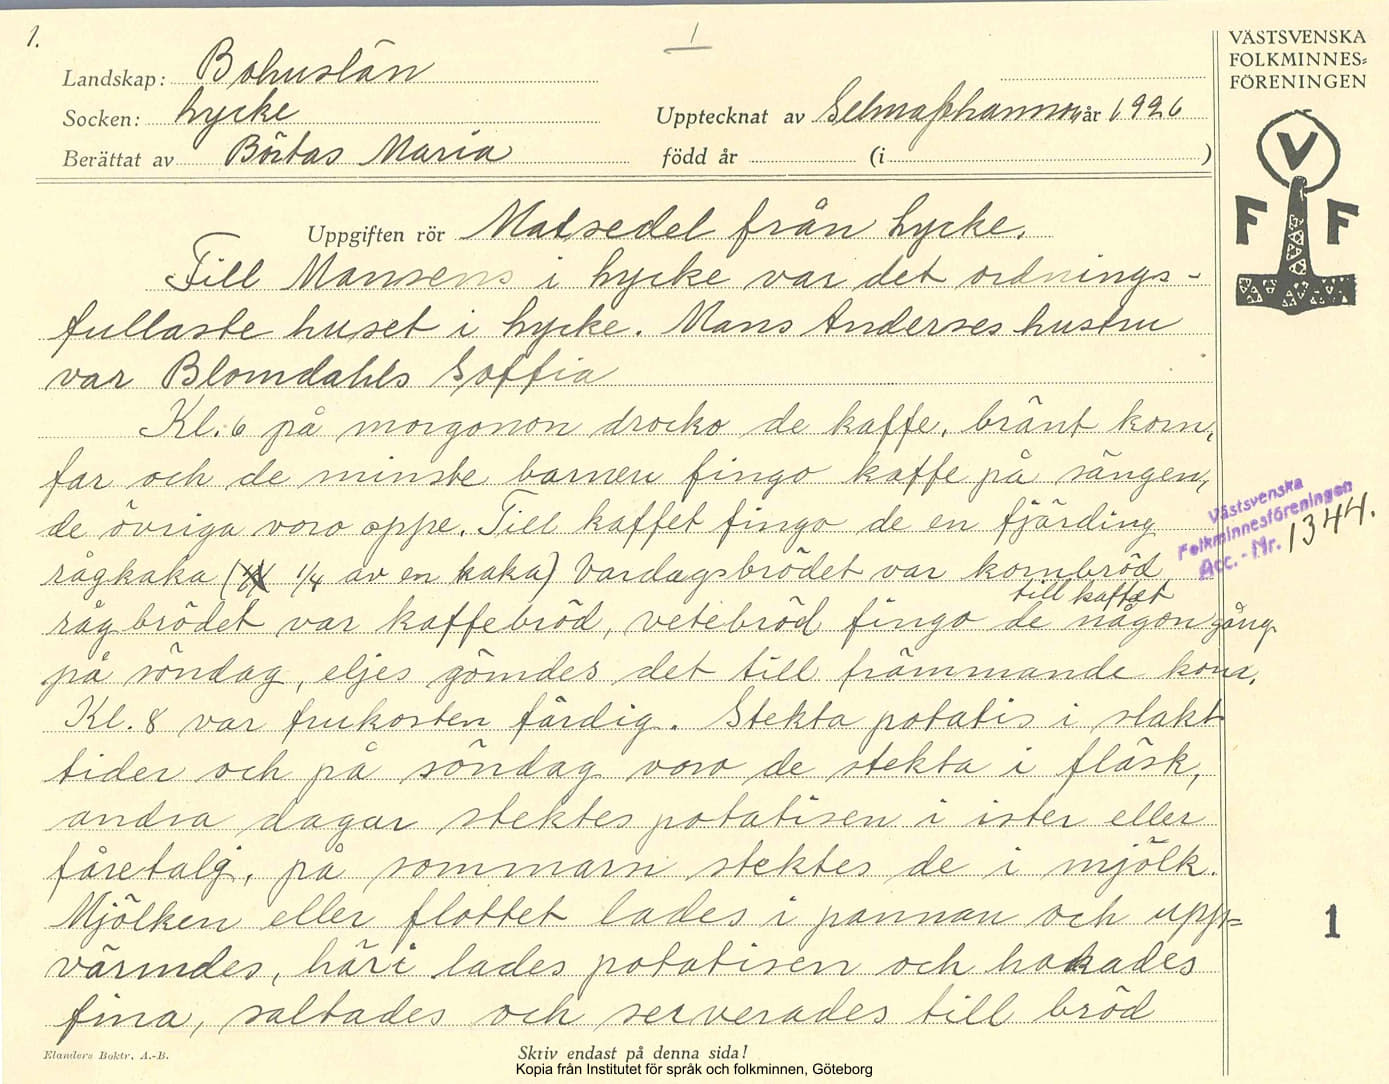 1.
1
Landskap: Bohuslän
Socken: Lycke
Upptecknat av Selma Johansson, år 1926
Berättat av Börtas Maria
född år (i )
VÄSTSVENSKA
FOLKMINNES-
FÖRENINGEN
V
F F
Uppgiften rör Matsedel från Lycke.
Till Mansens i Lycke var det ordnings-
fullaste huset i Lycke. Mans Anderses hustru
var Blomdahls Soffia
Kl. 6 på morgonon drocko de kaffe, bränt korn,
far och de minste barnen fingo kaffe på sängen,
de övriga voro oppe. Till kaffet fingo de en fjärding
rågkaka (1/4 av en kaka) Vardagsbrödet var kornbröd
till kaffet
rågbrödet var kaffebröd, vetebröd fingo de någon gång
på söndag, eljes gömdes det till främmande kom.
Kl. 8 var frukosten färdig. Stekta potatis i slakt
tider och på söndag voro de stekta i fläsk,
andra dagar stektes potatisen i ister eller
fåretalg, på sommarn stektes de i mjölk.
Mjölken eller flottet lades i pannan och upp=
värmdes, häri lades potatisen och hackades
fina, saltades och serverades till bröd
Västsvenska
Folkminnesföreningen
Acc.-Nr. 1344.
1
Elanders Boktr. A.-B.
Skriv endast på denna sida!
Kopia från Institutet för språk och folkminnen, Göteborg